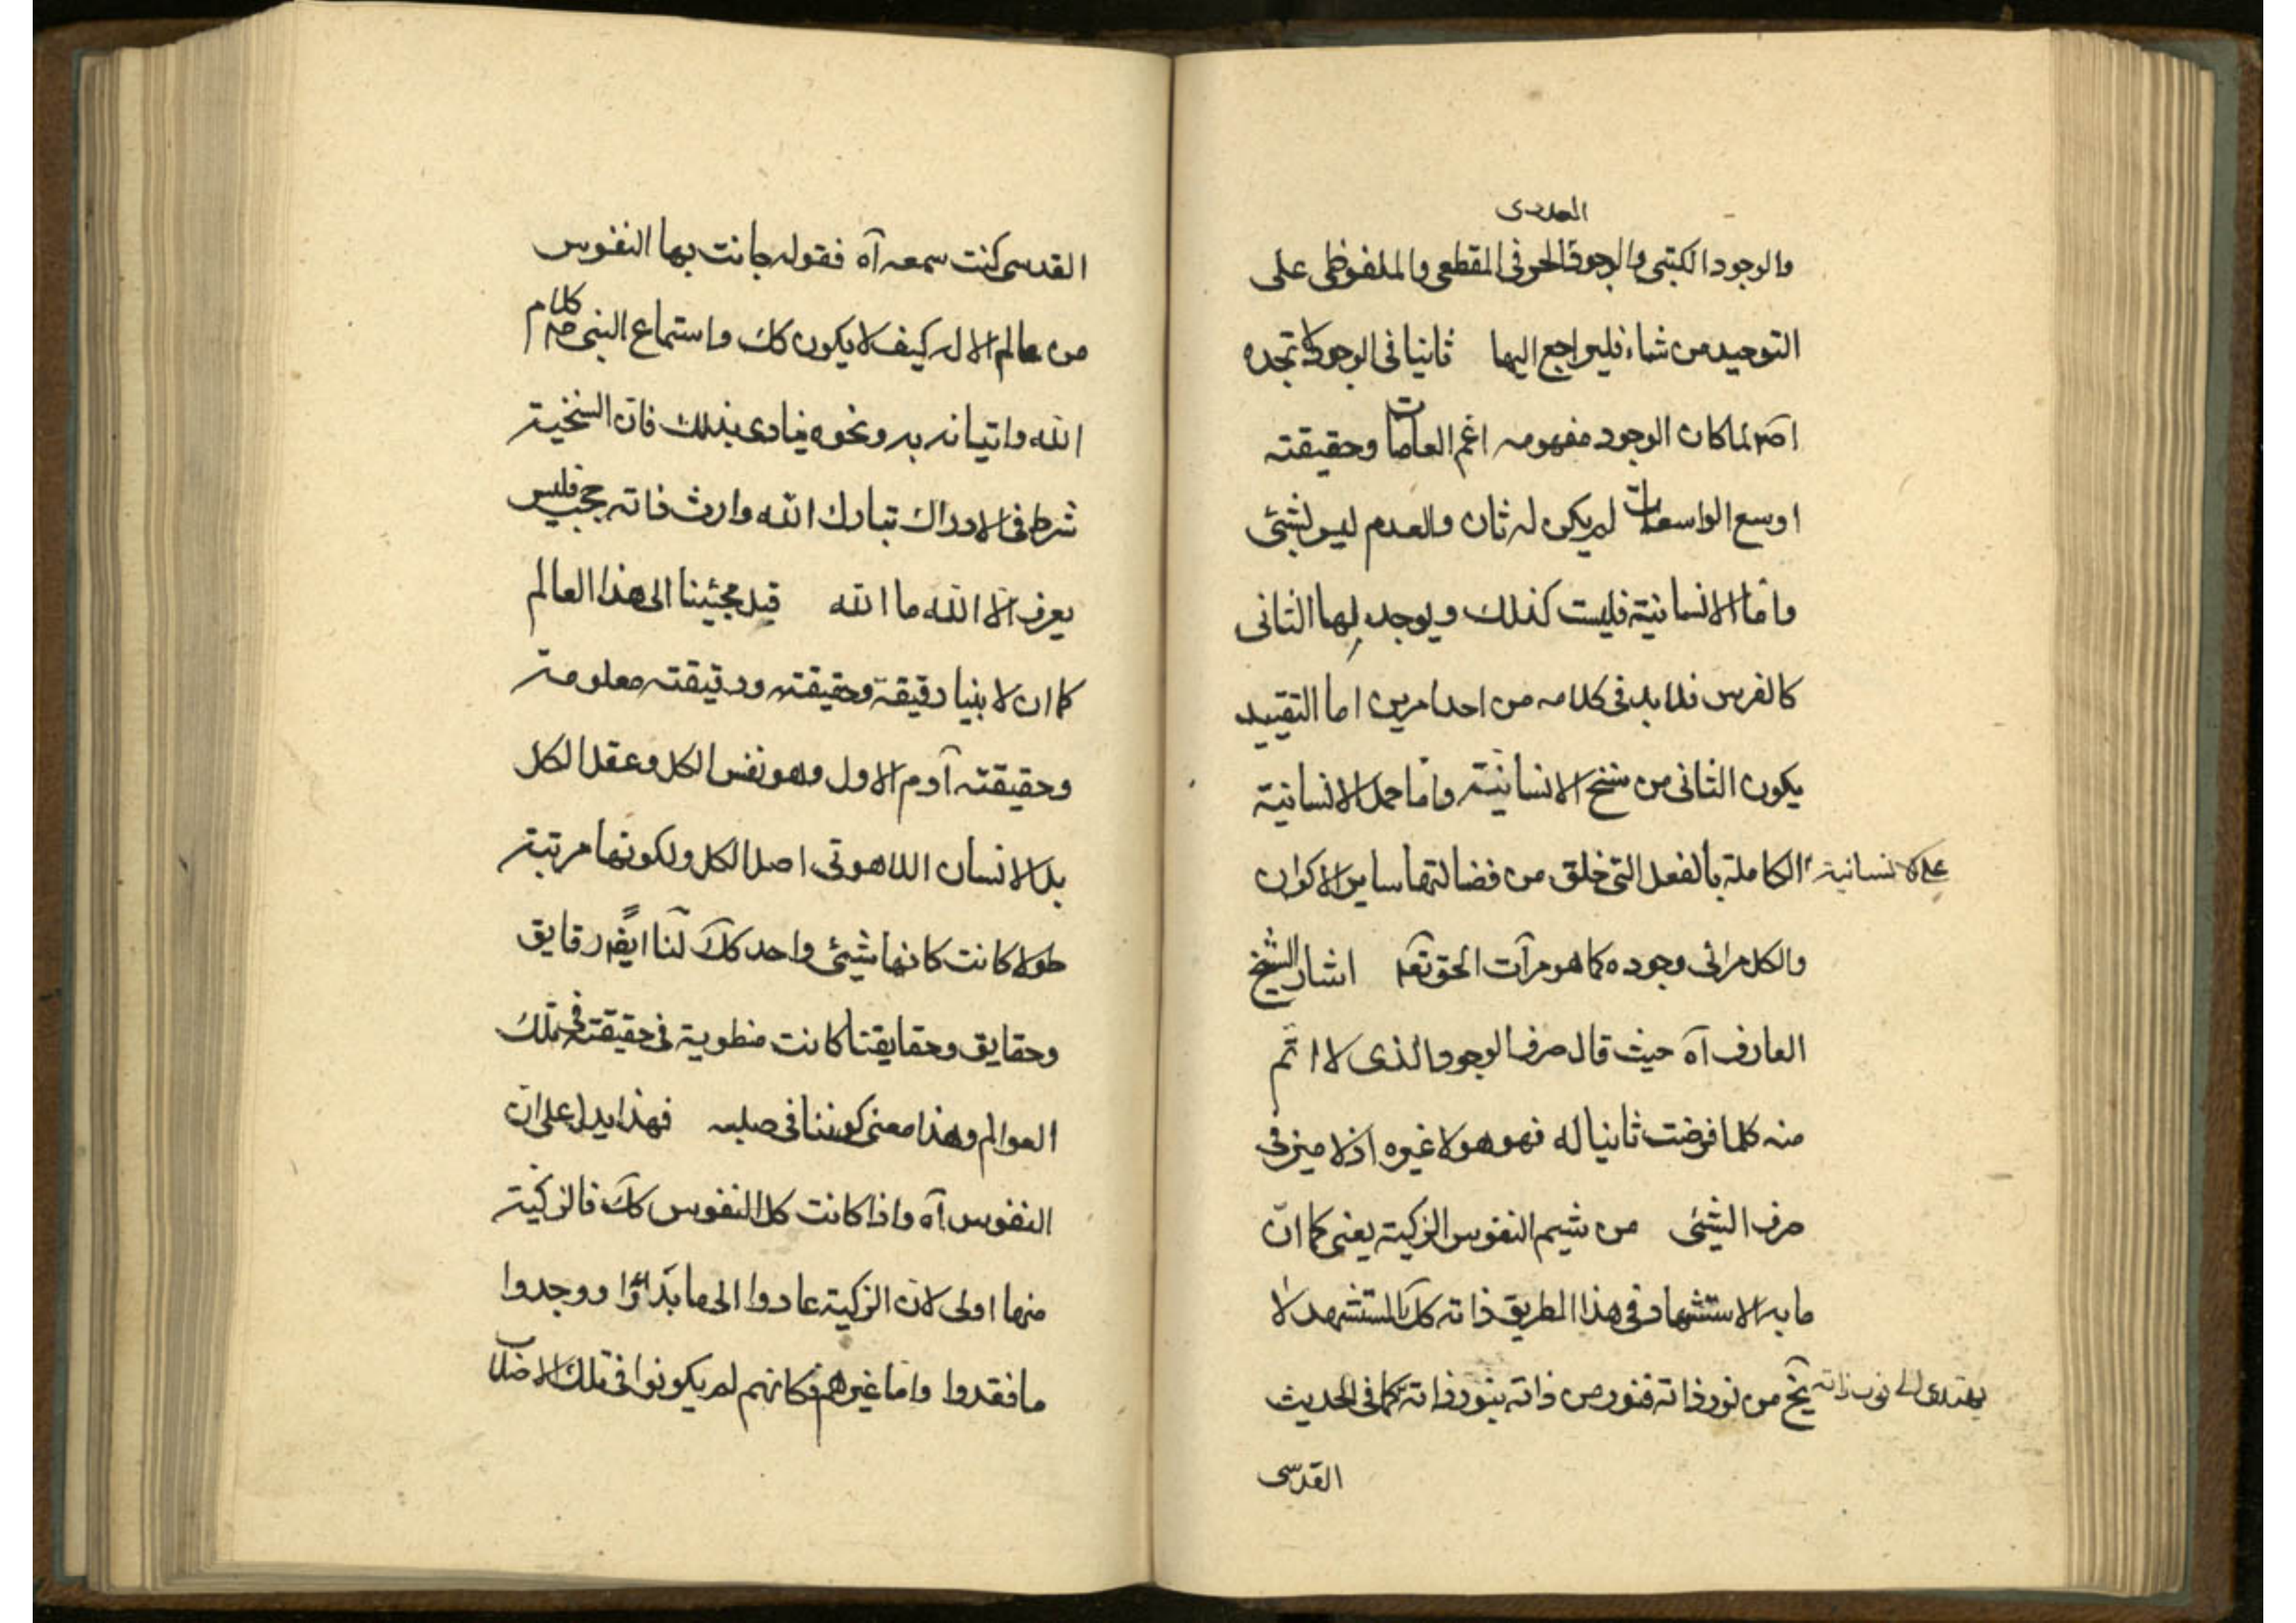 العددى
والوجود الكتبى والوجود الحرفى المقطعى والملفوظى على
التوحيد من شاء فليراجع اليها ثانيا فى الوجود لا تجده
اصلا لما كان الوجود مفهومه اعم العامات وحقيقته
اوسع الواسعات لم يكن له ثان والعدم ليس بشيئ
واما الانسانية فليست كذلك ويوجد لها الثانى
كالفرس فلا بد فى كلامه من احد امرين اما التقييد
يكون الثانى من سنخ الانسانية واما حمل الانسانية
على الانسانية الكاملة بالفعل التى خلق من فضالتها ساير الاكوان
والكل مرائى وجوده كما هو مرآت الحق تعه اشار الشيخ
العارف آه حيث قال صرف الوجود الذى لا اتم
منه كلما فرضت ثانيا له فهو هو لا غيره اذ لا ميز فى
صرف الشيئ من شيم النفوس الزكية يعنى كما ان
ما به الاستشهاد فى هذا الطريق ذاته كك المستشهد لا
يهتدى الى نور ذاته من نور ذاته فنور من ذاته بنور ذاته كما فى الحديث
القدسى
القدسى كنت سمعه آه فقوله جانت بها النفوس
من عالم الاله كيف لا يكون كك واستماع النبى صم كلام
الله واتيانه به ونحوه ينادى بذلك فان السنخية
شرط فى الادراك تبارك الله وارث ذاته حجب فليس
يعرف الا الله ما الله قبل مجيئنا الى هذا العالم
كما ان لابنيا رقيقة وحقيقته ورقيقته معلومة
وحقيقته آدم الاول وهو نفس الكل وعقل الكل
بل الانسان اللاهوتى اصل الكل ولكونها مرتبة
طولا كانت كانها شيئى واحد كك لنا ايضا رقايق
وحقايق وحقايقنا كانت منطوية فى حقيقته فى تلك
العوالم وهذا معنى كوننا فى صلبه فهذا يدل على ان
النفوس آه واذا كانت كل النفوس كك فالزكية
منها اولى لان الزكية عادوا الى ما بدائوا ووجدوا
ما فقدوا واما غيرهم فكانهم لم يكونوا فى تلك الاصلاب